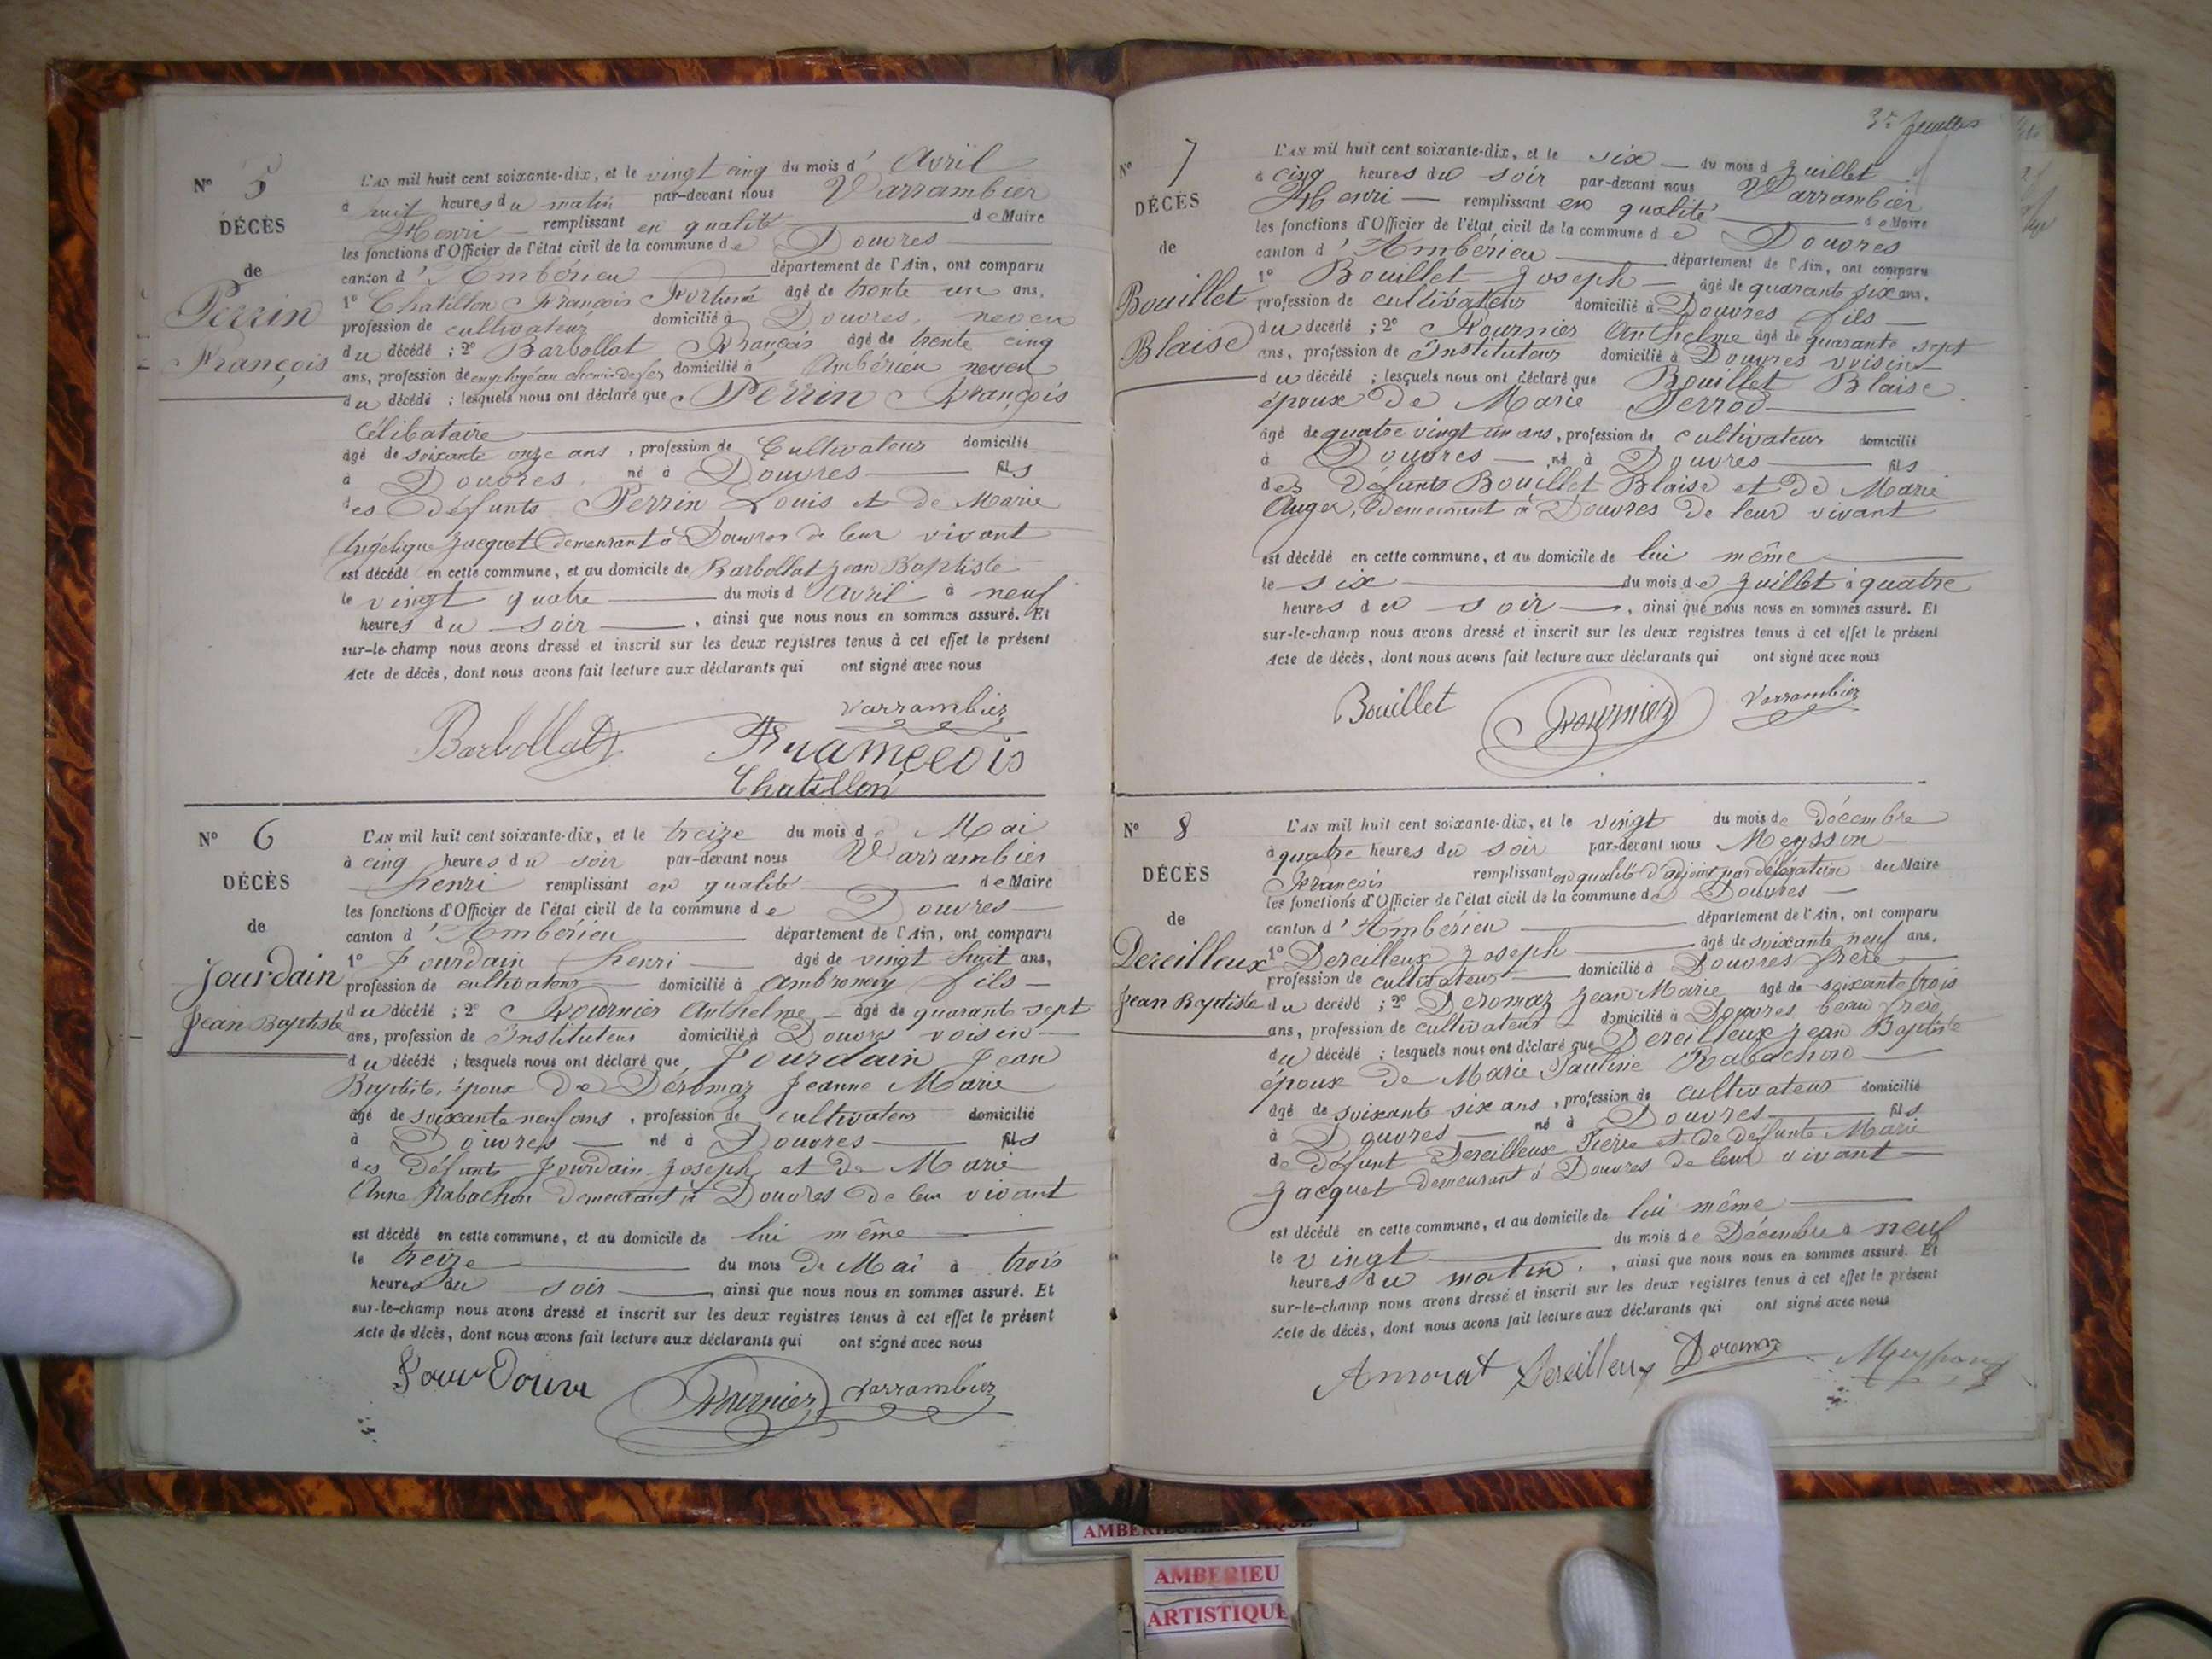 N° 5
DÉCÈS
de
Perrin
François
L'AN mil huit cent soixante-dix, et le vingt cinq du mois d' Avril
à huit heures du matin par-devant nous Varrambier
Henri remplissant en qualité de Maire
les fonctions d'Officier de l'état civil de la commune de Douvres
canton d' Ambérieu département de l'Ain, ont comparu
1° Chatillon François Fortuné âgé de trente un ans,
profession de cultivateur domicilié à Douvres, neveu
du décédé ; 2° Barbollat François âgé de trente cinq
ans, profession de employé au chemin de fer domicilié à Ambérieu neveu
du décédé ; lesquels nous ont déclaré que Perrin François
Célibataire
âgé de soixante onze ans , profession de Cultivateur domicilié
à Douvres né à Douvres fils
des défunts Perrin Louis et de Marie
Angélique Jacquet demeurant à Douvres de leur vivant
est décédé en cette commune, et au domicile de Barbollat Jean Baptiste
le vingt quatre du mois d' Avril à neuf
heures du soir , ainsi que nous nous en sommes assuré. Et
sur-le-champ nous avons dressé et inscrit sur les deux registres tenus à cet effet le présent
Acte de décès, dont nous avons fait lecture aux déclarants qui ont signé avec nous
Varrambier
Barbollat
Chatillon
N° 6
DÉCÈS
de
Jourdain
Jean Baptiste
L'AN mil huit cent soixante-dix, et le treize du mois de Mai
à cinq heures du soir par-devant nous Varrambier
henri remplissant en qualité de Maire
les fonctions d'Officier de l'état civil de la commune de Douvres
canton d' Ambérieu département de l'Ain, ont comparu
1° Jourdain henri âgé de vingt huit ans,
profession de cultivateur domicilié à Ambronay fils
du décédé ; 2° Fournier Anthelme âgé de quarante sept
ans, profession de Instituteur domicilié à Douvres voisin
du décédé ; lesquels nous ont déclaré que Jourdain Jean
Baptiste, époux de Deromaz Jeanne Marie
âgé de soixante neuf ans , profession de cultivateur domicilié
à Douvres né à Douvres fils
des défunts Jourdain Joseph et de Marie
Anne Rabachon demeurant à Douvres de leur vivant
est décédé en cette commune, et au domicile de lui même
le treize du mois de Mai à trois
heures du soir , ainsi que nous nous en sommes assuré. Et
sur-le-champ nous avons dressé et inscrit sur les deux registres tenus à cet effet le présent
Acte de décès, dont nous avons fait lecture aux déclarants qui ont signé avec nous
Fournier Varrambier
N° 7
DÉCÈS
de
Bouillet
Blaise
L'AN mil huit cent soixante-dix, et le six du mois d Juillet
à cinq heures du soir par-devant nous Varrambier
Henri remplissant en qualité de Maire
les fonctions d'Officier de l'état civil de la commune de Douvres
canton d' Ambérieu département de l'Ain, ont comparu
1° Bouillet Joseph âgé de quarante six ans,
profession de cultivateur domicilié à Douvres fils
du décédé ; 2° Fournier Anthelme âgé de quarante sept
ans, profession de Instituteur domicilié à Douvres voisin
du décédé ; lesquels nous ont déclaré que Bouillet Blaise
époux de Marie Perrod
âgé de quatre vingt un ans , profession de cultivateur domicilié
à Douvres , né à Douvres fils
des défunts Bouillet Blaise et de Marie
Auger, demeurant à Douvres de leur vivant
est décédé en cette commune, et au domicile de lui même
le six du mois de Juillet à quatre
heures du soir , ainsi que nous nous en sommes assuré. Et
sur-le-champ nous avons dressé et inscrit sur les deux registres tenus à cet effet le présent
Acte de décès, dont nous avons fait lecture aux déclarants qui ont signé avec nous
Bouillet Fournier Varrambier
N° 8
DÉCÈS
de
Dereilleux
Jean Baptiste
L'AN mil huit cent soixante-dix, et le vingt du mois de Décembre
à quatre heures du soir par-devant nous Meysson
François remplissant en qualité d'adjoint par délégation du Maire
les fonctions d'Officier de l'état civil de la commune de Douvres
canton d' Ambérieu département de l'Ain, ont comparu
1° Dereilleux Joseph âgé de soixante neuf ans,
profession de cultivateur domicilié à Douvres frère
du décédé ; 2° Deromaz Jean Marie âgé de soixante trois
ans, profession de cultivateur domicilié à Douvres beau frère
du décédé ; lesquels nous ont déclaré que Dereilleux Jean Baptiste
époux de Marie Pauline Rabachon
âgé de soixante six ans , profession de cultivateur domicilié
à Douvres né à Douvres fils
de défunt Dereilleux Pierre et de défunte Marie
Jacquet demeurant à Douvres de leur vivant
est décédé en cette commune, et au domicile de lui même
le vingt du mois de Décembre à neuf
heures du matin , ainsi que nous nous en sommes assuré. Et
sur-le-champ nous avons dressé et inscrit sur les deux registres tenus à cet effet le présent
Acte de décès, dont nous avons fait lecture aux déclarants qui ont signé avec nous
Amorat Dereilleux Deromaz
AMBERIEU
ARTISTIQUE